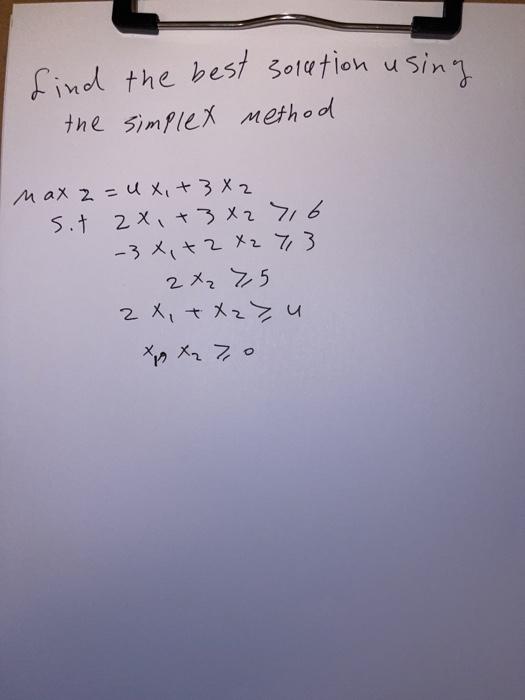 find the best solution using
the simplex method
Max z = 4 x₁ + 3 x₂
s.t 2x₁ + 3 x₂ ≥ 6
-3 x₁ + 2 x₂ ≥ 3
2 x₂ ≥ 5
2 x₁ + x₂ ≥ 4
x₁, x₂ ≥ 0